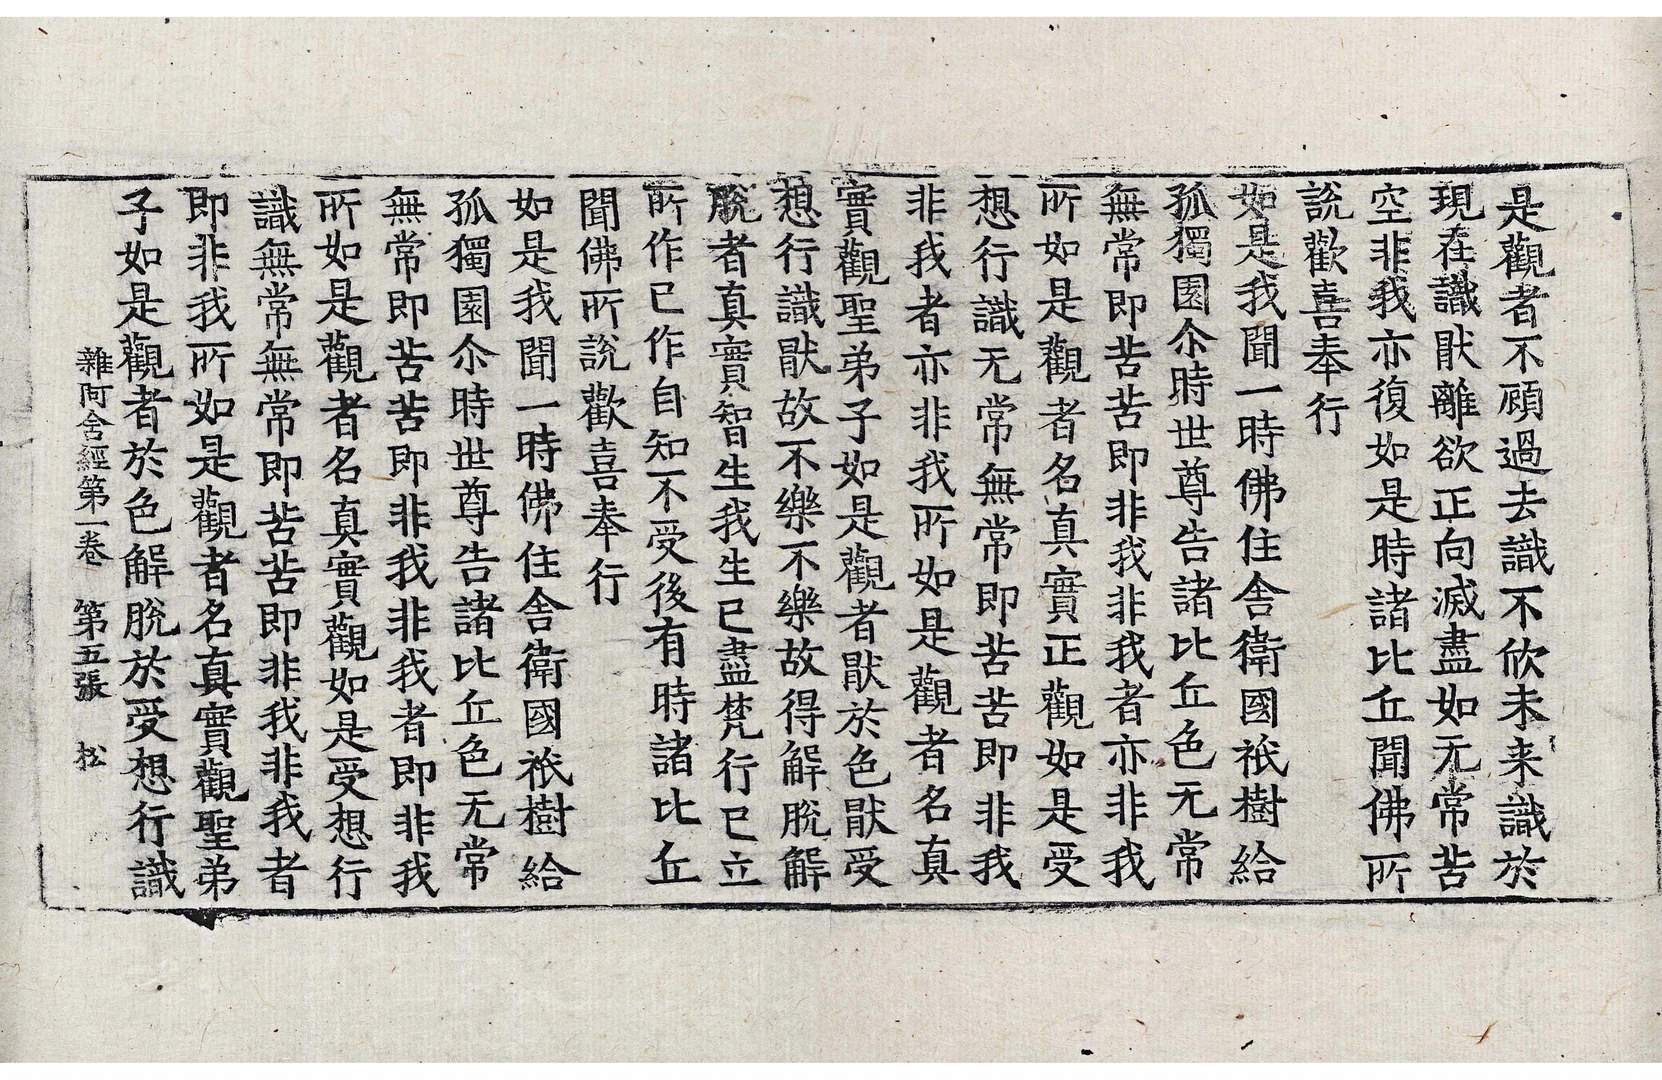 是觀者不頋過去識不欣未来識於
現在識猒離欲正向滅盡如无常苦
空非我亦復如是時諸比丘聞佛所
說歡喜奉行
如是我聞一時佛住舍衛國祇樹給
孤獨園尒時世尊告諸比丘色无常
無常即苦苦即非我非我者亦非我
所如是觀者名真實正觀如是受
想行識无常無常即苦苦即非我
非我者亦非我所如是觀者名真
實觀聖弟子如是觀者猒於色猒受
想行識猒故不樂不樂故得解脫解
脫者真實智生我生已盡梵行已立
所作已作自知不受後有時諸比丘
聞佛所說歡喜奉行
如是我聞一時佛住舍衛國祇樹給
孤獨園尒時世尊告諸比丘色无常
無常即苦苦即非我非我者即非我
所如是觀者名真實觀如是受想行
識無常無常即苦苦即非我非我者
即非我所如是觀者名真實觀聖弟
子如是觀者於色解脫於受想行識
雜阿含經第一卷 第五張 松